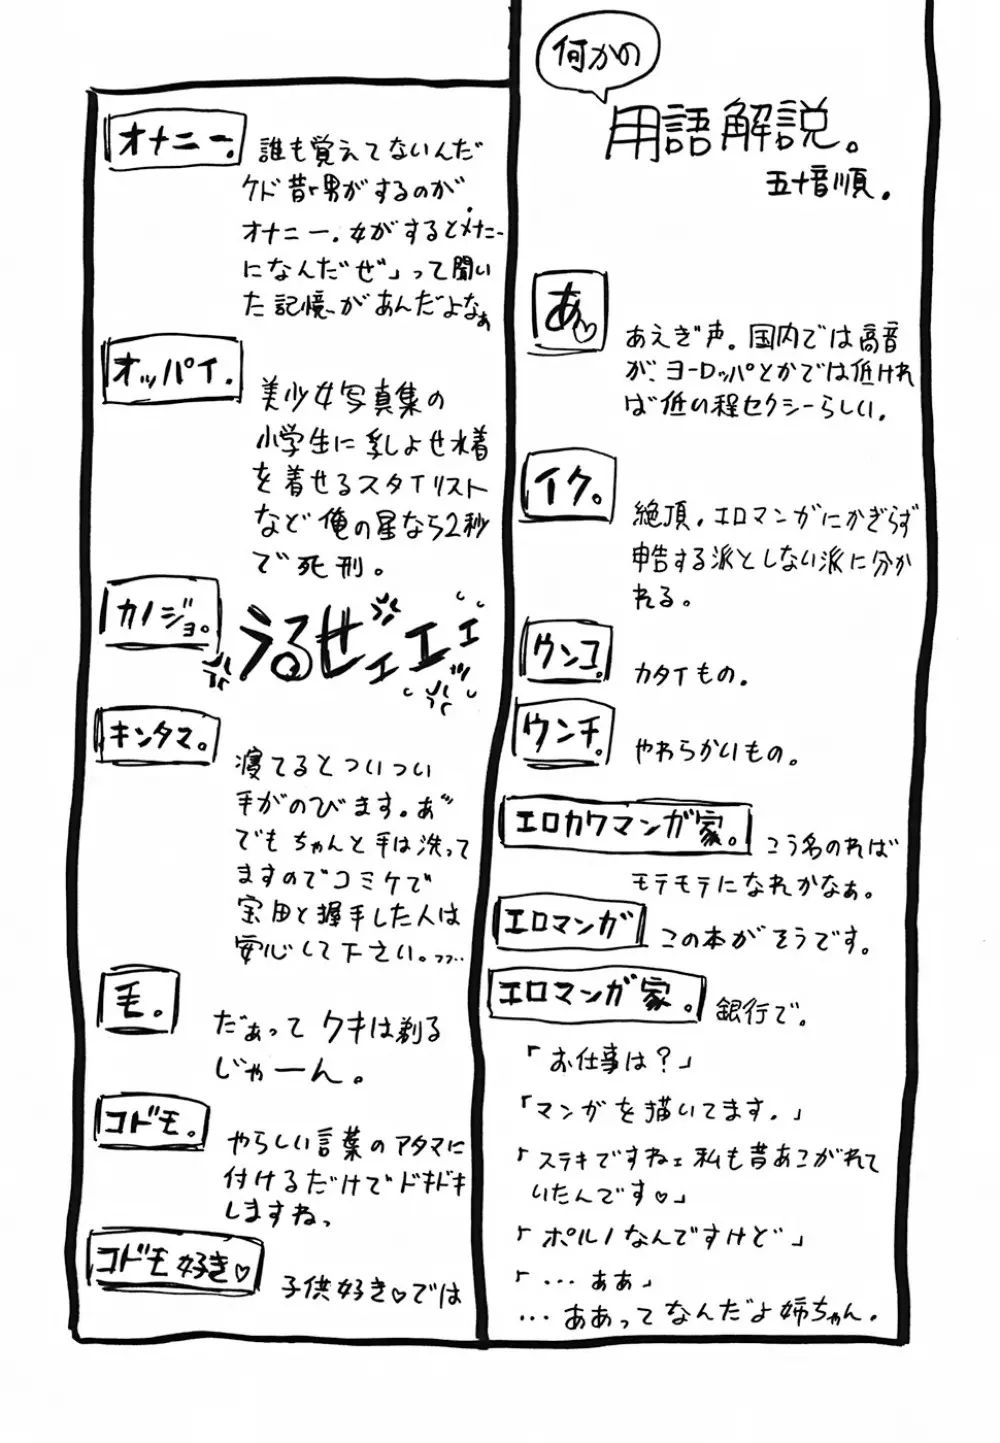 何かの
用語解説。
五十音順。
あ♡
あえぎ声。国内では高音
が、ヨーロッパとかでは低けれ
ば低い程セクシーらしい。
イク。
絶頂。エロマンガにかぎらず
申告する派としない派に分か
れる。
ウンコ。
カタイもの。
ウンチ。
やわらかいもの。
エロカワマンガ家。
こう名のれば
モテモテになれかなぁ。
エロマンガ
この本がそうです。
エロマンガ家。
銀行で。
「お仕事は？」
「マンガを描いてます。」
「ステキですねェ私も昔あこがれて
いたんです♡」
「ポルノなんですけど」
「…ああ」
…ああってなんだよ姉ちゃん。
オナニー。
誰も覚えてないんだ
ケド昔「男がするのが、
オナニー。女がするとメナニー
になんだぜ」って聞い
た記憶があんだよなぁ
オッパイ。
美少女写真集の
小学生に乳よせ水着
を着せるスタイリスト
など俺の星なら2秒
で死刑。
カノジョ。
うるせェエェ
キンタマ。
寝てるとついつい
手がのびます。あ゛
でもちゃんと手は洗って
ますのでコミケで
宝田と握手した人は
安心して下さい。フフ…
毛。
だぁってクキは剃る
じゃーん。
コドモ。
やらしい言葉のアタマに
付けるだけでドキドキ
しますねっ
コドモ好き♡
子供好き♡では